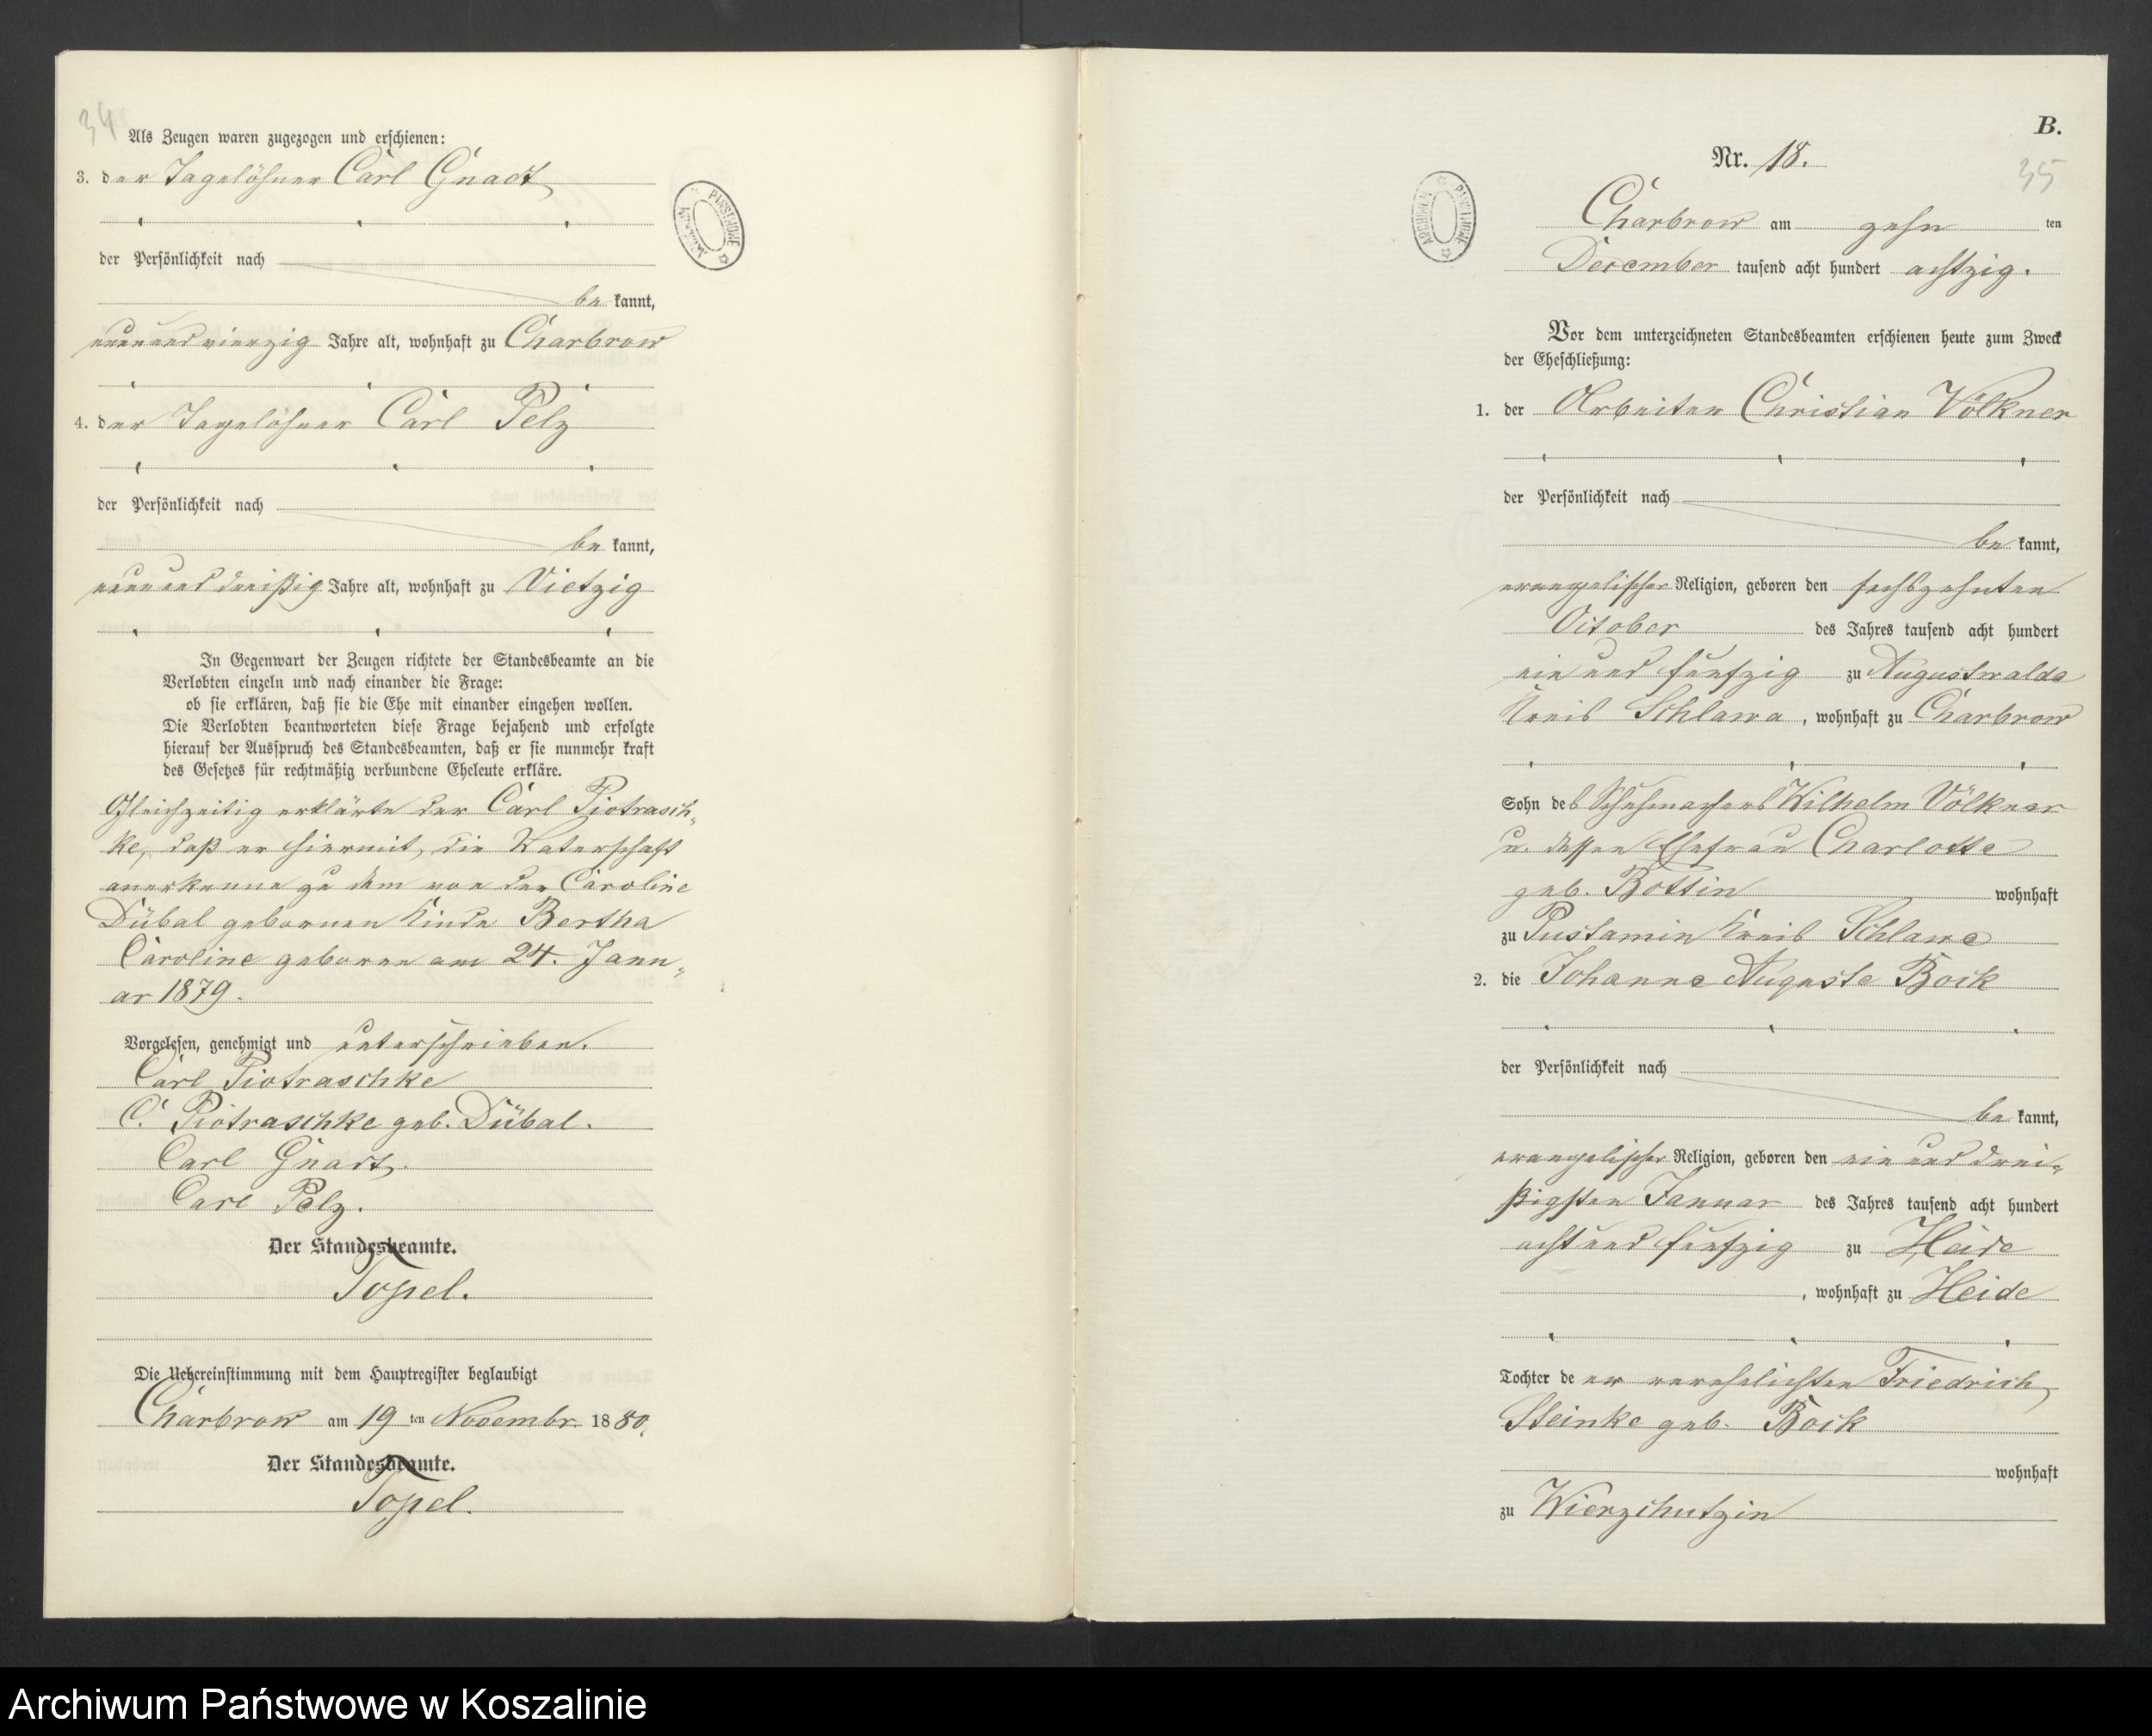 34
Als Zeugen waren zugezogen und erschienen:
3. der Tagelöhner Carl Gnadt
der Persönlichkeit nach
be kannt,
neunundvierzig Jahre alt, wohnhaft zu Charbrow
4. der Tagelöhner Carl Pelz
der Persönlichkeit nach
be kannt,
neununddreißig Jahre alt, wohnhaft zu Vietzig
In Gegenwart der Zeugen richtete der Standesbeamte an die
Verlobten einzeln und nach einander die Frage:
ob sie erklären, daß sie die Ehe mit einander eingehen wollen.
Die Verlobten beantworteten diese Frage bejahend und erfolgte
hierauf der Ausspruch des Standesbeamten, daß er sie nunmehr kraft
des Gesetzes für rechtmäßig verbundene Eheleute erkläre.
Gleichzeitig erklärte der Carl Piotrasch-
ke, daß er hiermit, die Vaterschaft
anerkenne zu dem von der Caroline
Dübal gebornen Kinde Bertha
Caroline geboren am 24. Janu-
ar 1879.
Vorgelesen, genehmigt und unterschrieben.
Carl Piotraschke
C. Piotraschke geb. Dübal.
Carl Gnadt.
Carl Pelz.
Der Standesbeamte.
Topel.
Die Uebereinstimmung mit dem Hauptregister beglaubigt
Charbrow am 19 ten Novembr. 1880.
Der Standesbeamte.
Topel.
ARCHIWUM PAŃSTWOWE
B.
Nr. 18.
35
ARCHIWUM PAŃSTWOWE
Charbrow am zehn ten
December tausend acht hundert achtzig.
Vor dem unterzeichneten Standesbeamten erschienen heute zum Zweck
der Eheschließung:
1. der Arbeiter Christian Völkner
der Persönlichkeit nach
be kannt,
evangelischer Religion, geboren den sechszehnten
October des Jahres tausend acht hundert
ein und funfzig zu Augustwalde
Kreis Schlawa, wohnhaft zu Charbrow
Sohn des Schuhmachers Wilhelm Völkner
u. dessen Ehefrau Charlotte
geb. Bottin wohnhaft
zu Pustamin Kreis Schlawe
2. die Johanne Auguste Bock
der Persönlichkeit nach
be kannt,
evangelischer Religion, geboren den ein und drei-
ßigsten Januar des Jahres tausend acht hundert
acht und funfzig zu Heide
, wohnhaft zu Heide
Tochter de er verehelichten Friedrich
Steinke geb. Bock
wohnhaft
zu Wierzchutzin
Archiwum Państwowe w Koszalinie